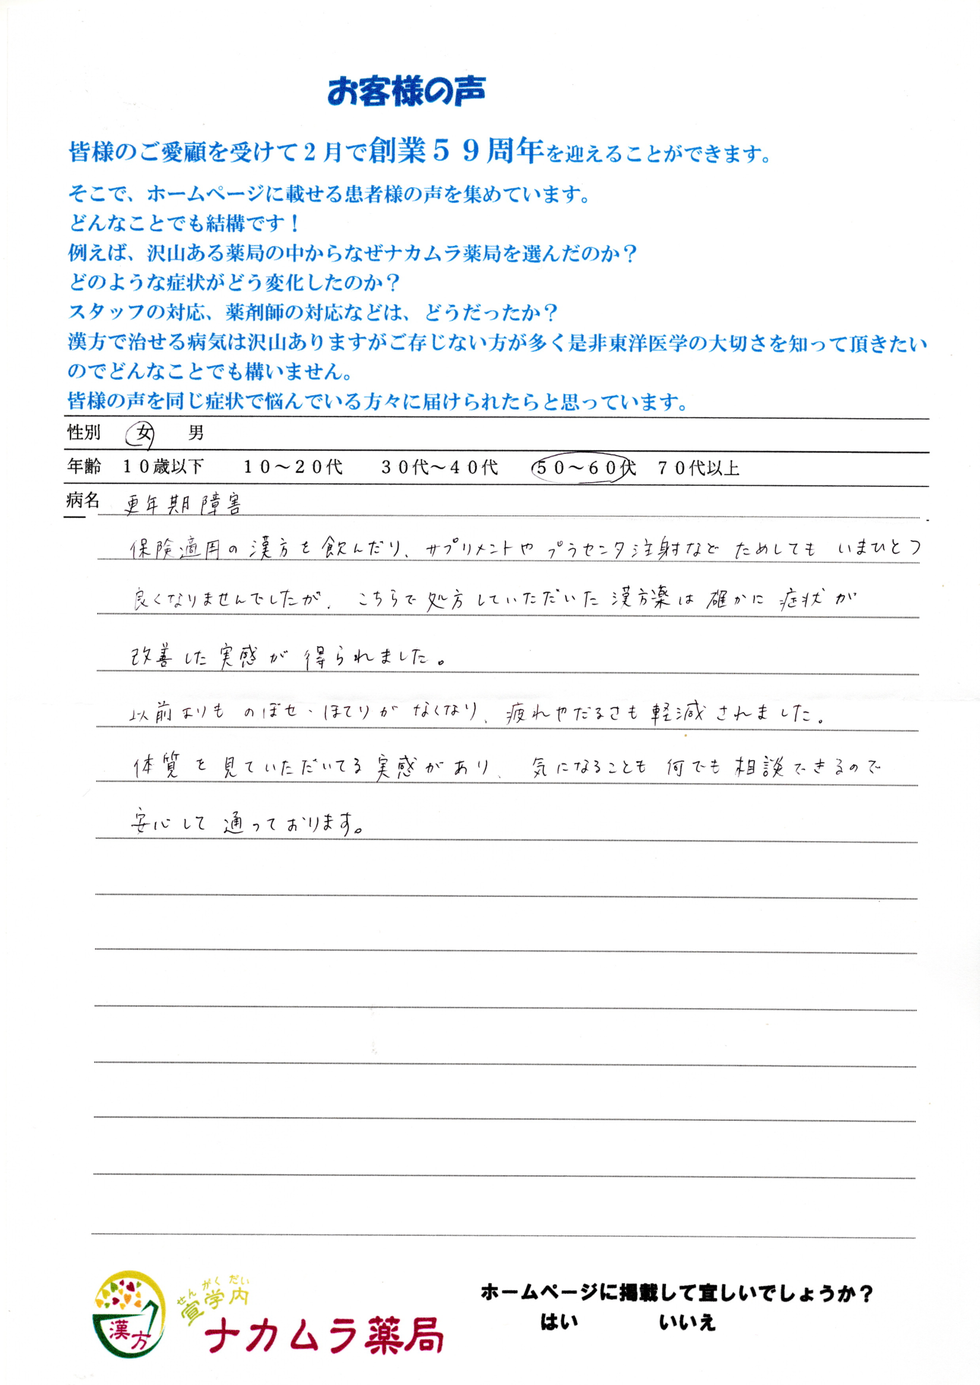 お客様の声
皆様のご愛顧を受けて２月で創業５９周年を迎えることができます。
そこで、ホームページに載せる患者様の声を集めています。
どんなことでも結構です！
例えば、沢山ある薬局の中からなぜナカムラ薬局を選んだのか？
どのような症状がどう変化したのか？
スタッフの対応、薬剤師の対応などは、どうだったか？
漢方で治せる病気は沢山ありますがご存じない方が多く是非東洋医学の大切さを知って頂きたい
のでどんなことでも構いません。
皆様の声を同じ症状で悩んでいる方々に届けられたらと思っています。
性別 女 男
年齢 １０歳以下 １０～２０代 ３０代～４０代 ５０～６０代 ７０代以上
病名 更年期障害
保険適用の漢方を飲んだり、サプリメントやプラセンタ注射など ためしても いまひとつ
良くなりませんでしたが、こちらで処方していただいた漢方薬は確かに症状が
改善した実感が得られました。
以前よりも のぼせ・ほてりが なくなり、疲れやだるさも軽減されました。
体質を見ていただいてる実感があり、気になることも何でも相談できるので
安心して通っております。
せんがくだい
宣学内
漢方
ナカムラ薬局
ホームページに掲載して宜しいでしょうか？
はい いいえ